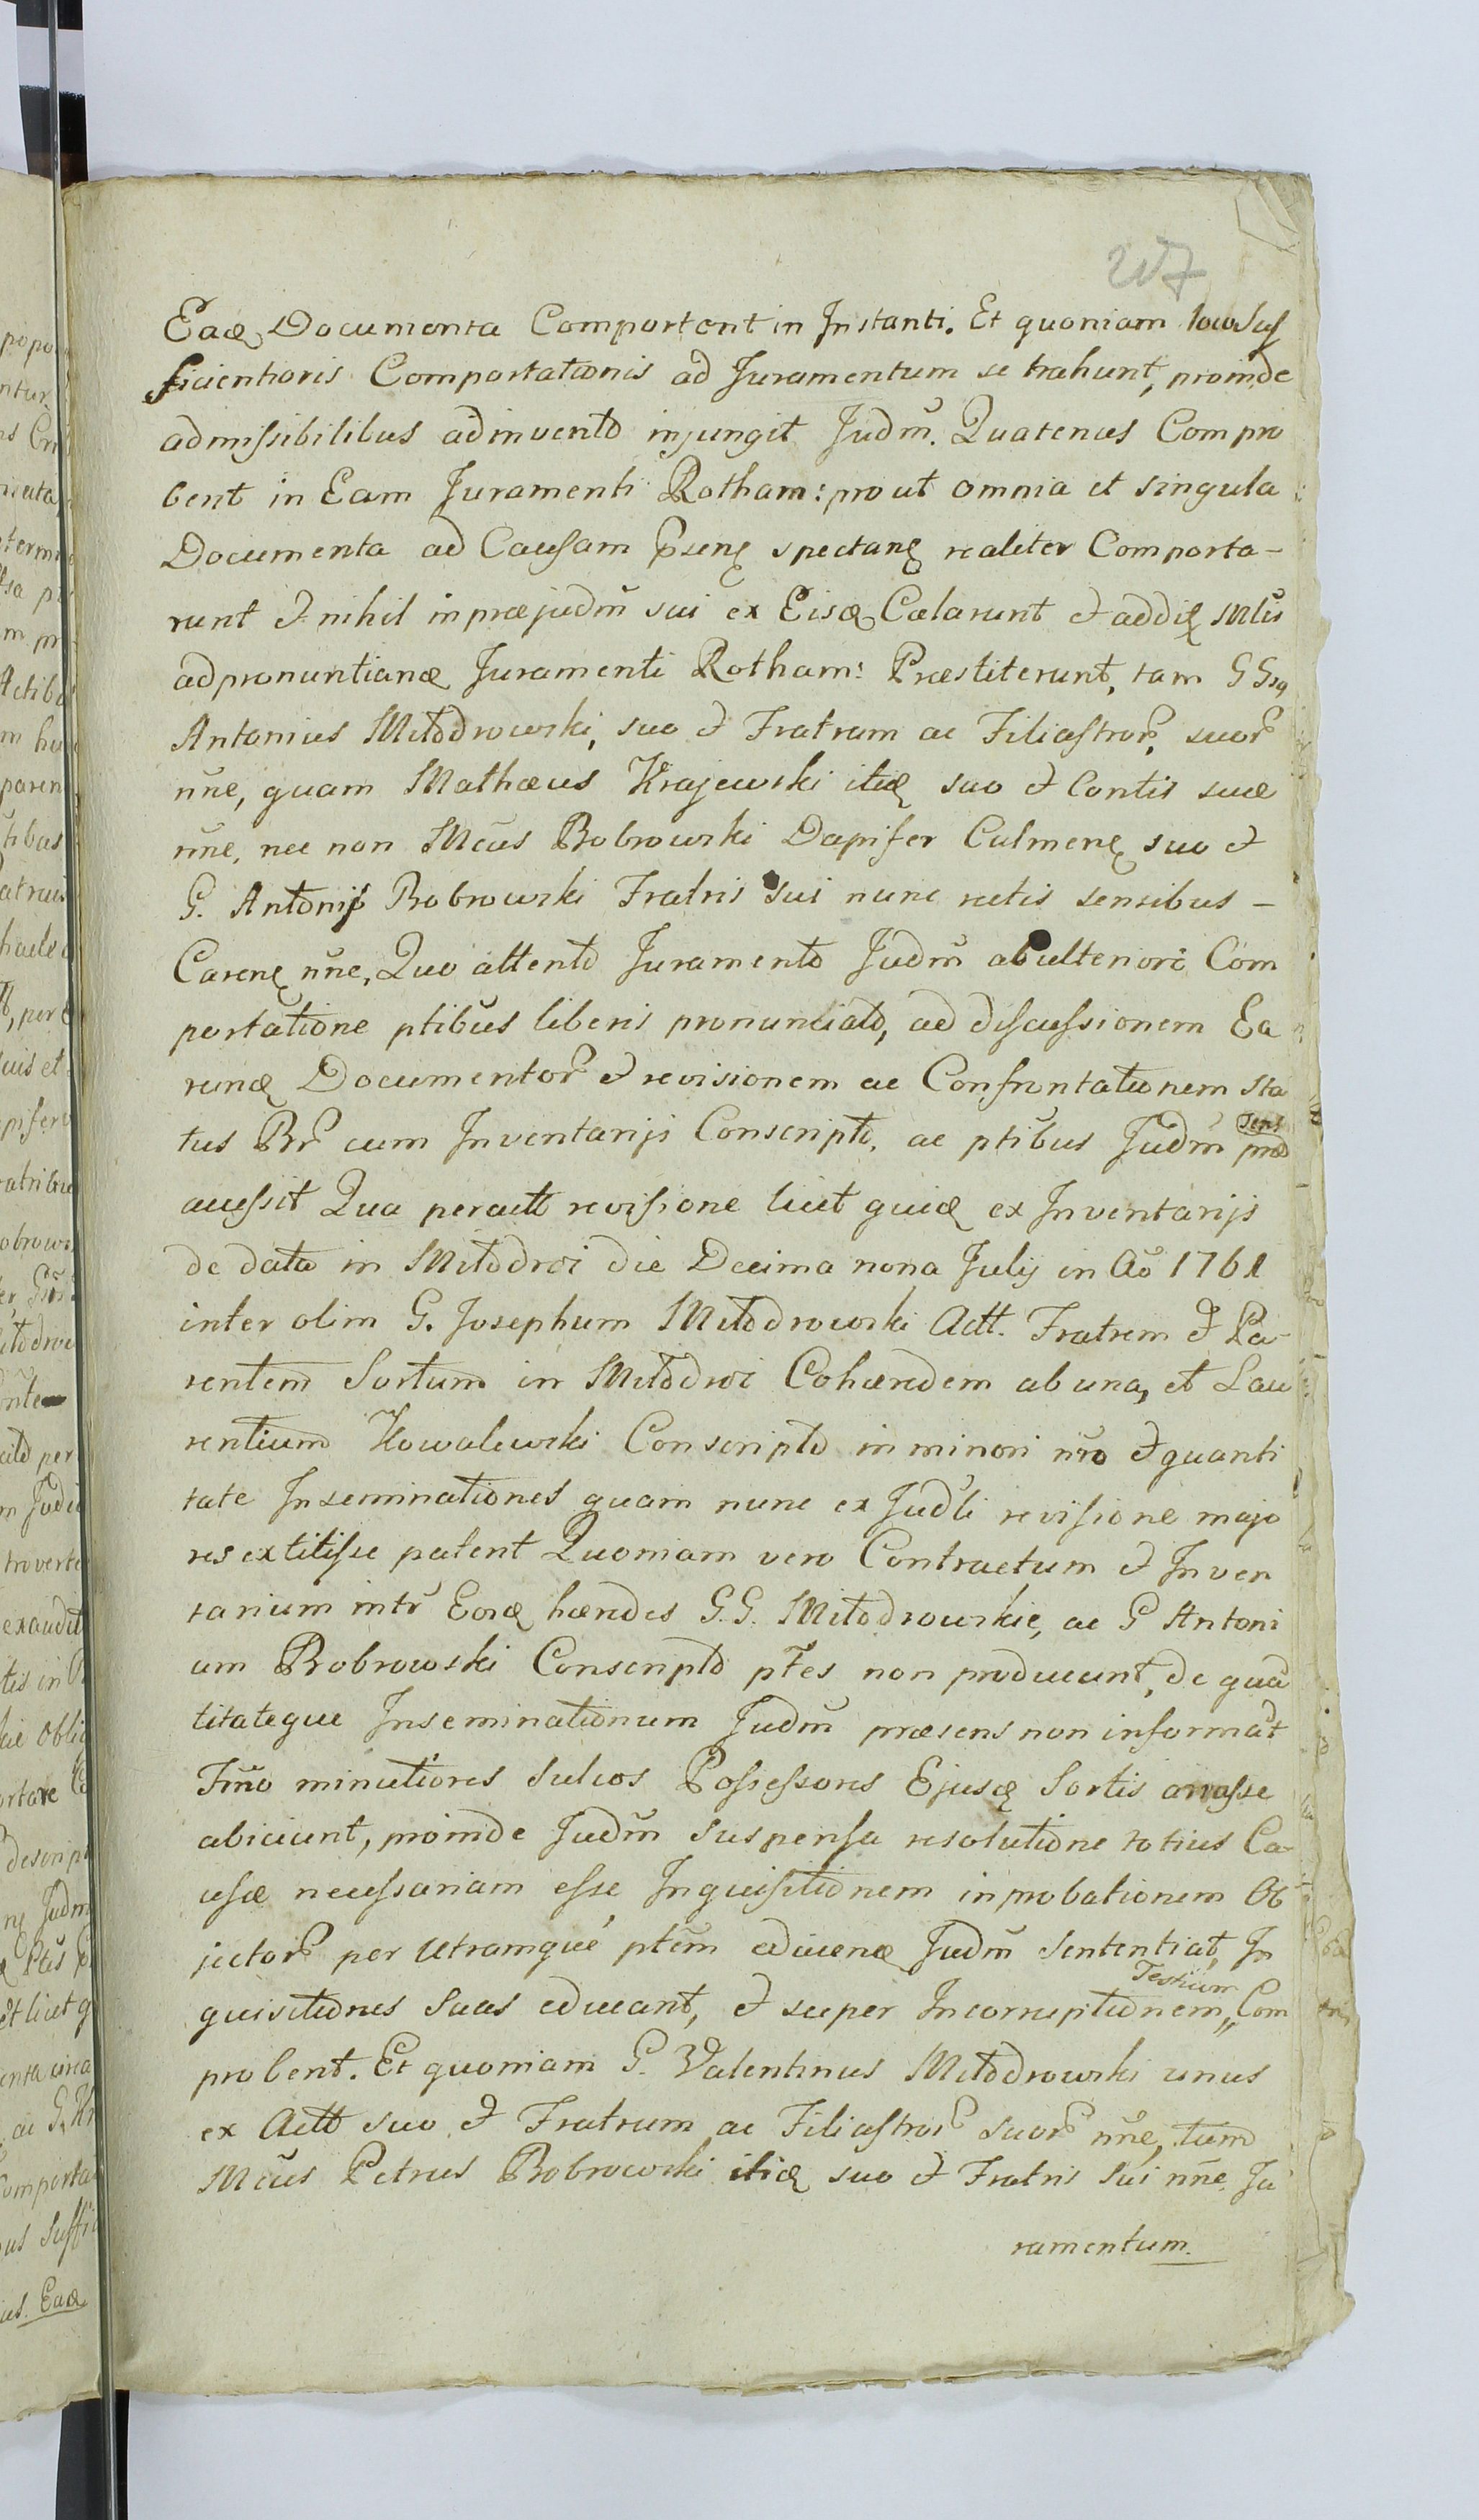 Eade Documenta Comportent in Instanti. Et quoniam loco Suf
ficientioris Comportationis ad Juramentum se trahunt, proinde
admissibilibus adinvento injungit Judm̃. Quatenus Compro
bent in Eam Juramenti Rotham: prout omnia et singula
Documenta ad Causam p̃senē spectanē realiter Comporta-
runt & nihil in præjudm̃ sui ex Eisde Cælarunt & addiē Mĩlis
ad pronuntiande Juramenti Rotham: Præstiterunt, tam GGsq
Antonius Miłodrowski, suo & Fratrum ac Filiastror̃, suor̃
nñe, quam Mathæus Krajewski itid suo & Contis suæ
nñe, nec non Mcũs Bobrowski Dapifer Culmenē suo &
G. Antonij Bobrowski Fratris sui nunc rectis sensibus -
Carenē nñe, Quo attento Juramento Judm̃ ab ulteriori Com
portatione ptibũs liberis pronunciato, ad discussionem Ea
runde Documentor̃ & revisionem ac Confrontationem sta
tus Br̃ cum Inventarijs Conscripto, ac ptibus Judm̃ præ
sens
acessit Qua peracta revisione licet quid ex Inventarijs
de data in Miłodroi die Decima nona Julij in Aõ 1761
inter olim G. Josephum Miłodrowski Actt. Fratrem & Pa-
rentem Sortium in Miłodroi Cohæredem ab una, et Lau
rentium Kowalewski Conscripto in minori nr̃o & quanti
tate Inseminationes quam nunc ex Judl̃i revisione majo
res extitisse patent Quoniam vero Contractum & Inven
tarium intr̃ Eosde hæredes G.G. Miłodrowskie, ac G Antoni
um Bobrowski Conscripto pt̃es non producunt, de quã
titateque Inseminationum Judm̃ præsens non informat
Imo minutiores Sulcos Possessores Ejusde Sortis arrasse
abiciunt, proinde Judm̃ suspensa resolutione totius Ca-
usæ necessariam esse Inquisitionem in probationem Ob
jector̃ per Utramque ptẽm educende Judm̃ Sententiat, In
quisitiones Suas educant, & super Incorruptionem „ Com
Testium
probent. Et quoniam G. Valentinus Miłodrowski unus
ex Actt suo & Fratrum ac Filiastror̃ suor̃ nñe, tum
Mcũs Petrus Bobrowski itid suo & Fratris Sui nñe. Ju
ramentum.